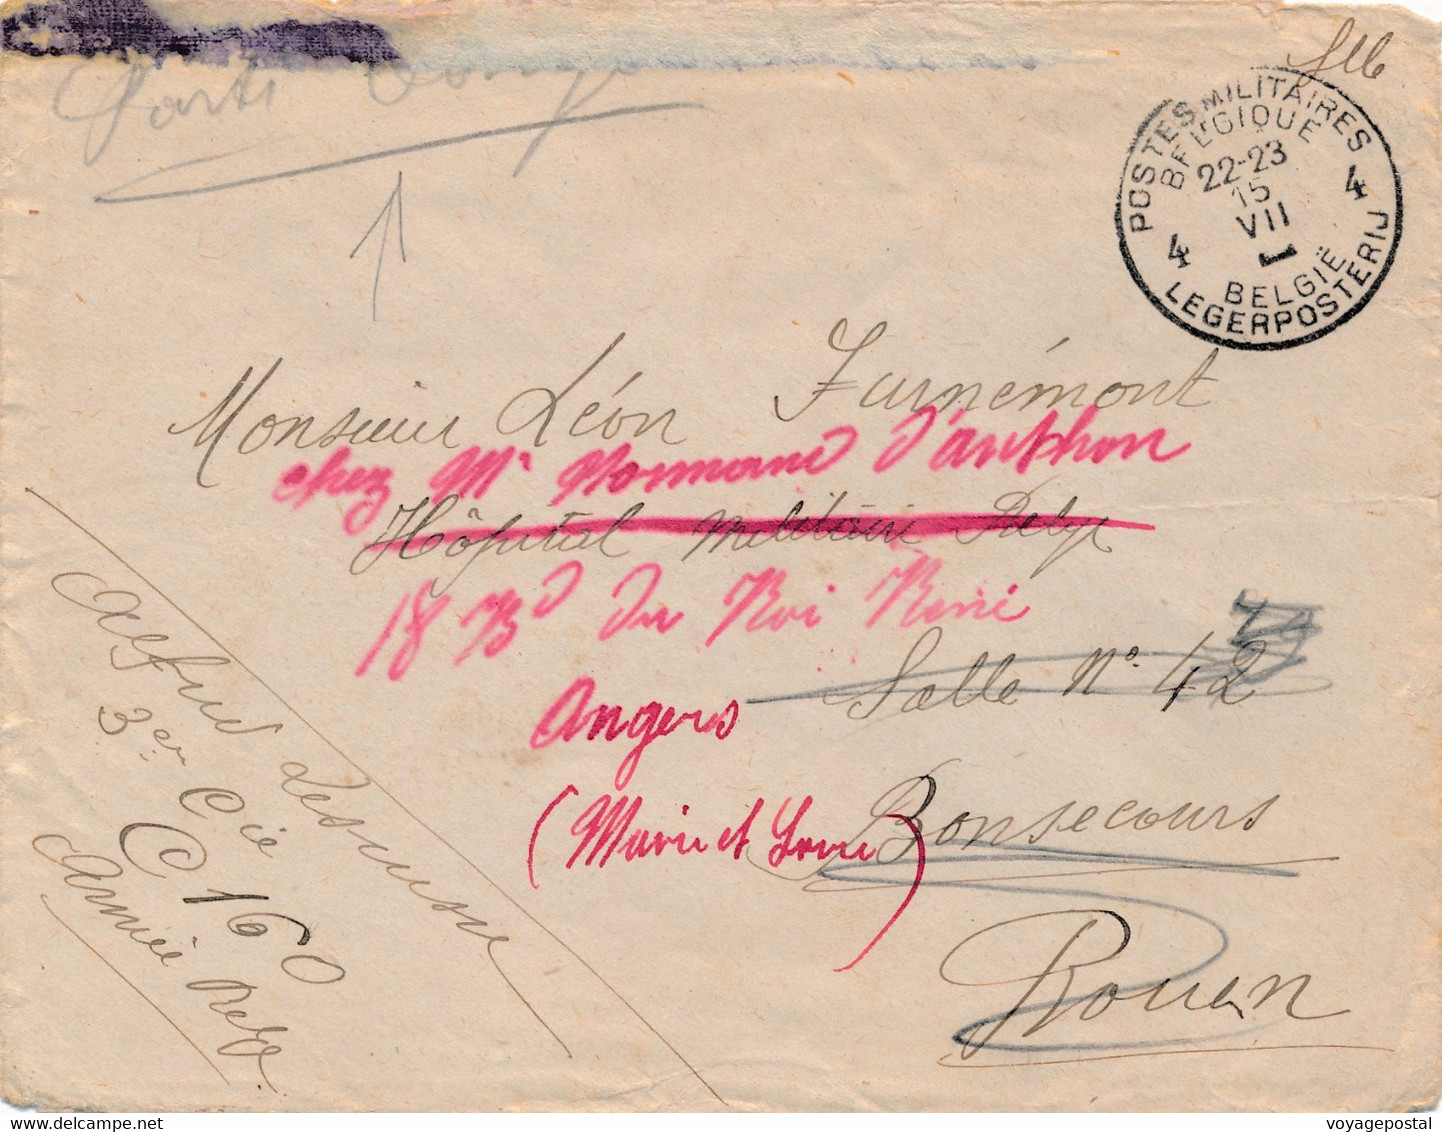 Parti Congé
SM
POSTES MILITAIRES
BELGIQUE
22-23
15
VII
4 4
BELGIË
LEGERPOSTERIJ
Monsieur Léon Furnémont
chez Mr Normand d'Anthon
Hôpital Militaire Belge
18 Bd du Roi René
Salle No 42
Angers
(Maine et Loire)
Bonsecours
Rouen
Alfred Lesuisse
3er Cie
C 160
Armée Belge
voyagepostal